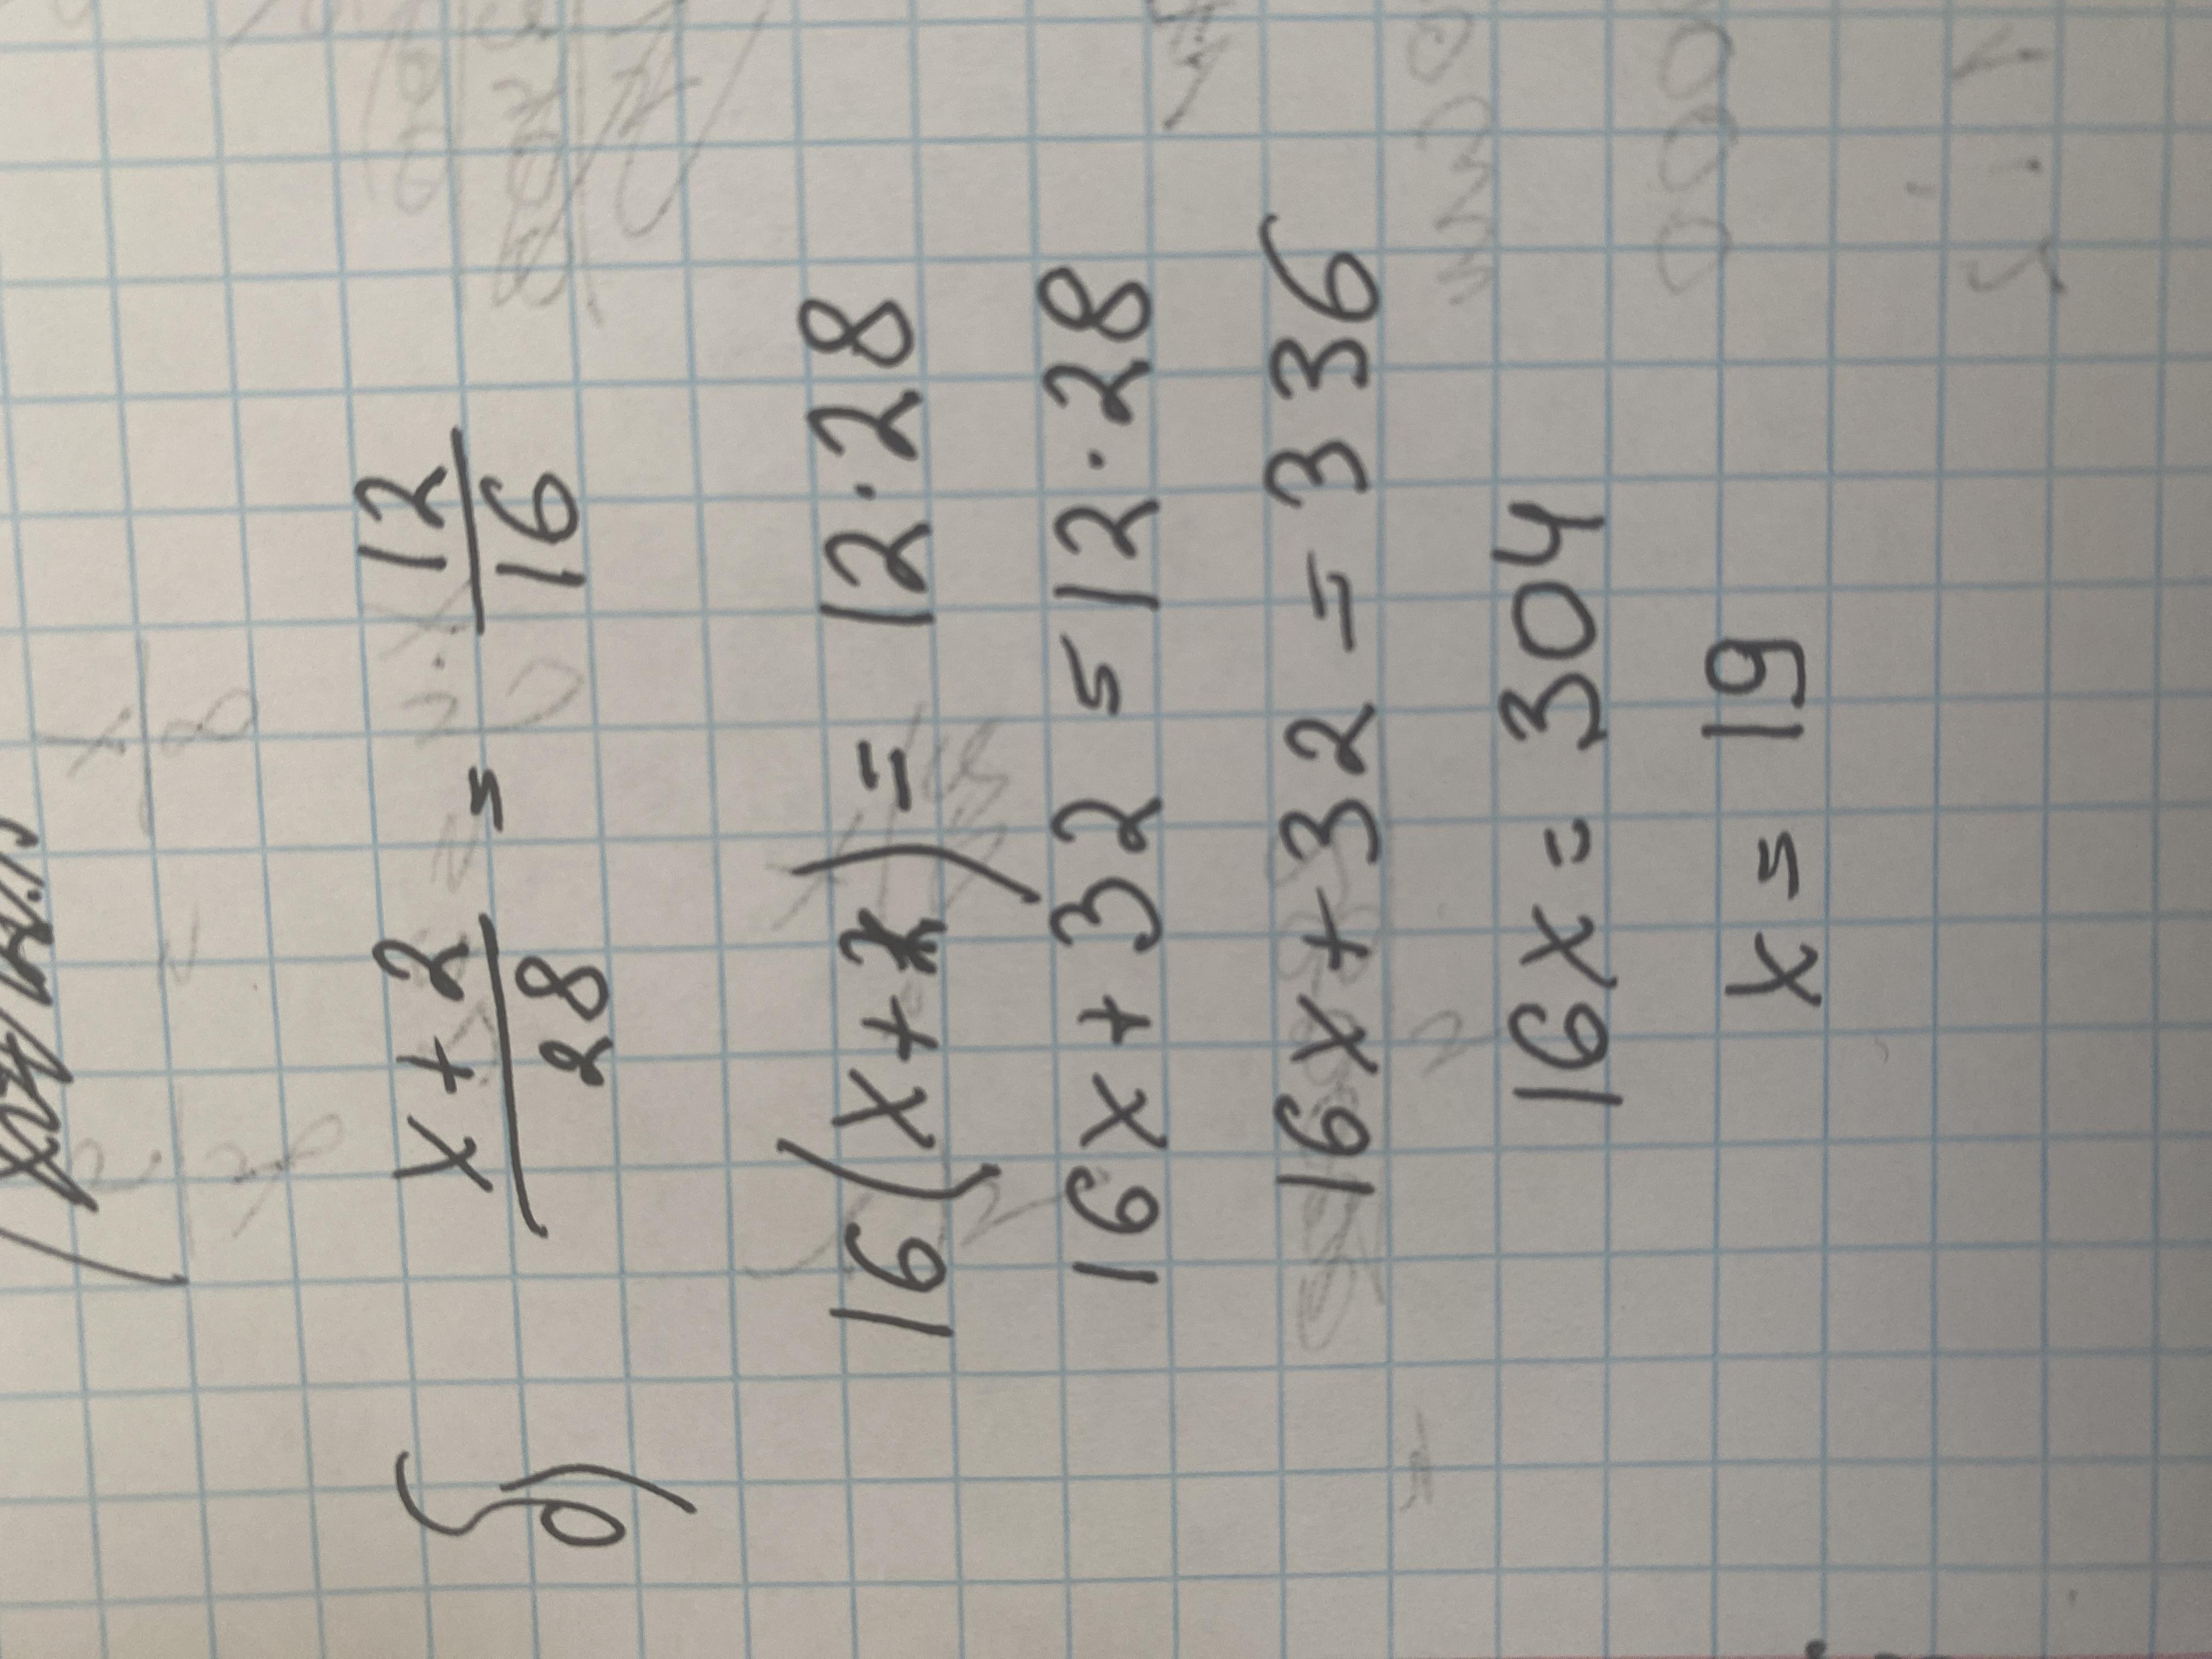 б) x + 2 / 28 = 12 / 16
16(x + 2) = 12 · 28
16x + 32 = 12 · 28
16x + 32 = 336
16x = 304
x = 19